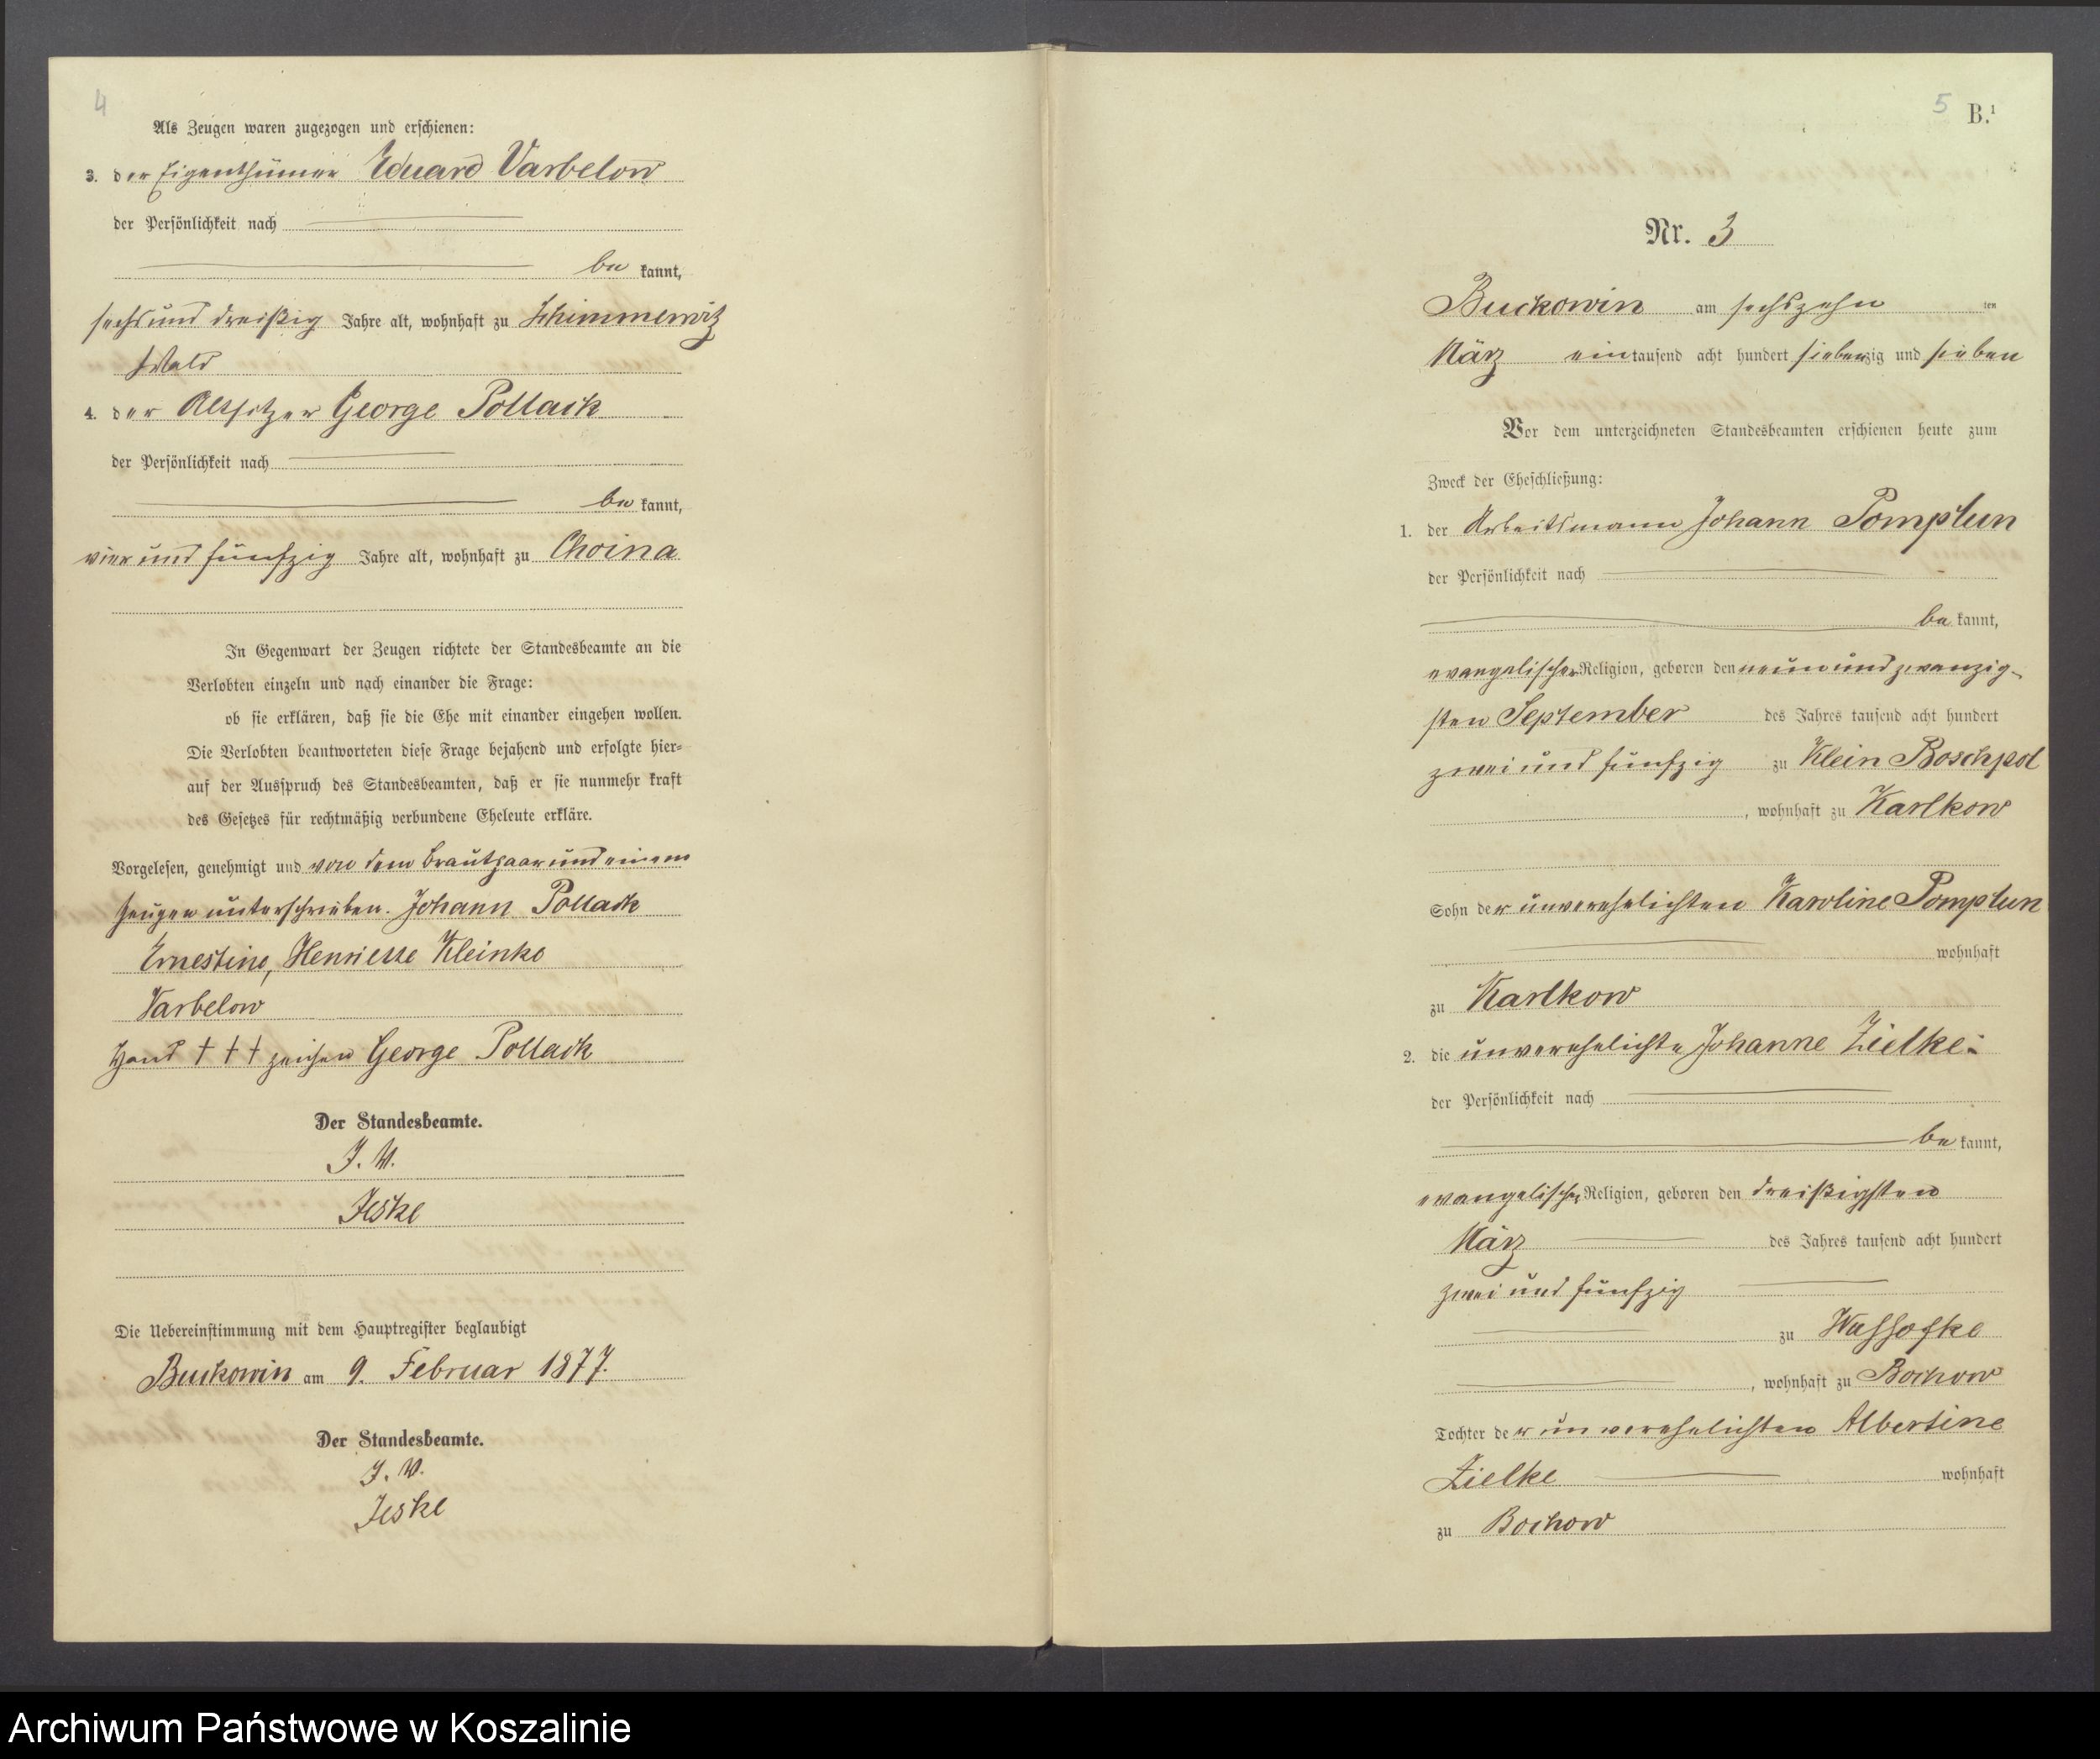 4
Als Zeugen waren zugezogen und erschienen:
3. der Eigenthümer Eduard Varbelow
der Persönlichkeit nach
be kannt,
sechs und dreißig Jahre alt, wohnhaft zu Schimmerwitz
Wald
4. der Altsitzer George Pollack
der Persönlichkeit nach
be kannt,
vier und fünfzig Jahre alt, wohnhaft zu Choina
In Gegenwart der Zeugen richtete der Standesbeamte an die
Verlobten einzeln und nach einander die Frage:
ob sie erklären, daß sie die Ehe mit einander eingehen wollen.
Die Verlobten beantworteten diese Frage bejahend und erfolgte hier-
auf der Ausspruch des Standesbeamten, daß er sie nunmehr kraft
des Gesetzes für rechtmäßig verbundene Eheleute erkläre.
Vorgelesen, genehmigt und von dem Brautpaar und einem
Zeugen unterschrieben. Johann Pollack
Ernestine, Henriette Kleinke
Varbelow
Hand † † † zeichen George Pollack
Der Standesbeamte.
J. V.
Jeske
Die Uebereinstimmung mit dem Hauptregister beglaubigt
Buckowin am 9. Februar 1877.
Der Standesbeamte.
J. V.
Jeske
5 B.¹
Nr. 3
Buckowin am sechszehn ten
März ein tausend acht hundert siebenzig und sieben
Vor dem unterzeichneten Standesbeamten erschienen heute zum
Zweck der Eheschließung:
1. der Arbeitsmann Johann Pomplun
der Persönlichkeit nach
be kannt,
evangelischer Religion, geboren den neun und zwanzig-
sten September des Jahres tausend acht hundert
zwei und fünfzig zu Klein Boschpol
, wohnhaft zu Karlkow
Sohn der unverehelichten Karoline Pomplun
wohnhaft
zu Karlkow
2. die unverehelichte Johanne Zielke
der Persönlichkeit nach
be kannt,
evangelischer Religion, geboren den dreißigsten
März des Jahres tausend acht hundert
zwei und fünfzig
zu
, wohnhaft zu Bochow
Tochter der unverehelichten Albertine
Zielke wohnhaft
zu Bochow
Archiwum Państwowe w Koszalinie